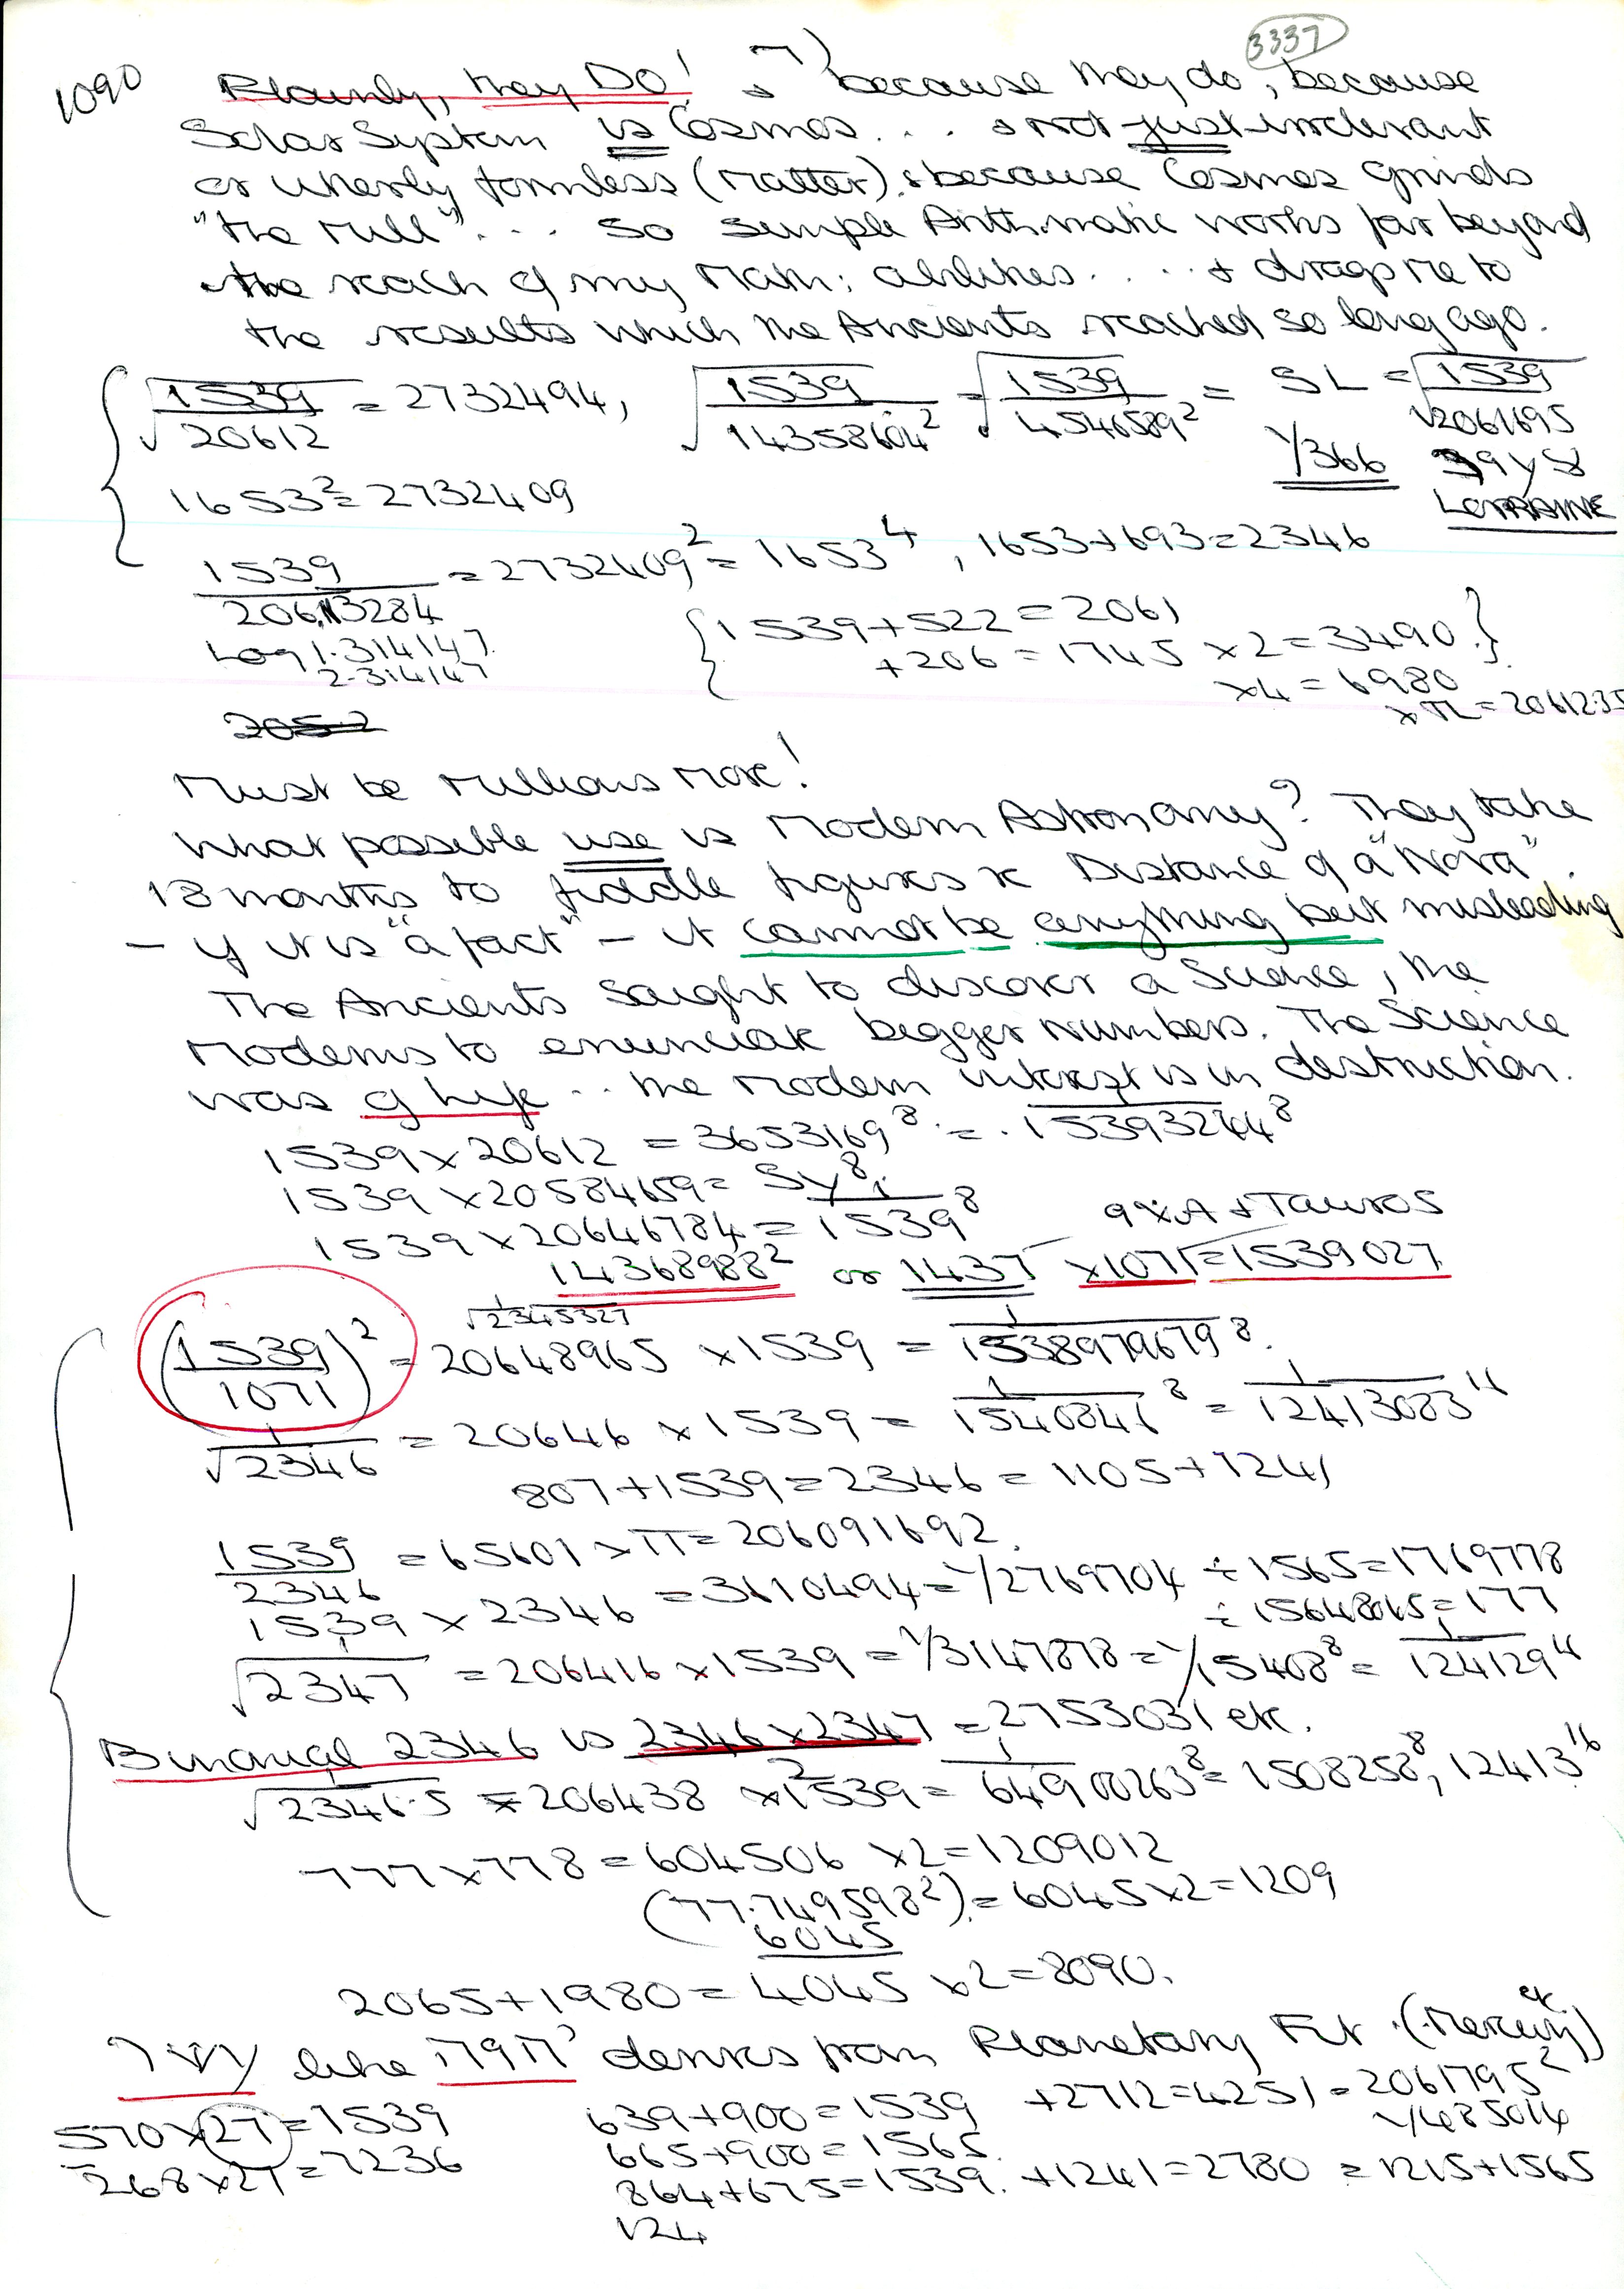 3337
1090 Plainly, they DO! & because they do, because
Solar System is Cosmos... & not just irrelevant
or utterly formless (Matter) & because Cosmos grinds
"the Mill"... so simple Arithmatic works far beyond
the reach of my Math: abilities.... & drags me to
the results which the Ancients reached so long ago.
√1539/20612 = 2732494, √1539/14358604² = √1539/4546589² = SL = √1539/√2061695
1/366
LORRAINE
1653² = 2732409
1539/20613284 = 2732409² = 1653⁴, 1653+693=2346
Log 1.314147
2.314147
{1539+522=2061
+206=1745 ×2=3490}
×4=6980
Must be Millions More!
What possible use is Modern Astronomy? They take
18 months to fiddle figures re Distance of a "Nova".
– if it is "a fact" – it cannot be anything but misleading
The Ancients sought to discover a Science, the
Moderns to enunciate bigger numbers. The Science
was of Life... the modern interest is in destruction.
1539×20612 = 3653169⁸ = 1/153932744⁸
1539×20584659 = SY⁸
1539×20646784 = 1/1539⁸ 9×A & Tauros
143689882² or 1437 ×1071=1539027
1/√2345327
(1539/1071)² = 20648965 ×1539 = 1/1538979679⁸.
1/√2346 = 20646×1539 = 1/1540846⁸ = 1/12413083¹⁶
807+1539=2346=1105+1241
1539/2346 = 65601×π=206091692.
1539×2346 = 3610494=1/2769704 ÷1565=1769778
÷15648065=177
1/√2347 = 206416×1539 = 1/3147878 = 1/15408⁸ = 1/124129¹⁶
Binomial 2346 is 2346×2347/2 = 2753031 etc.
1/√2346.5 = 206438 ×1539 = 1/64900263⁸ = 1508258⁸, 12413¹⁶
777×778=604506 ×2=1209012
(77.749598²)=6045×2=1209
6045
2065+1980=4045 ×2=8090.
like derives from Planetary Fit. (Mercury) etc.
570×27=1539
268×27=7236
639+900=1539 +2712=4251=2061795²
665+900=1565.
864+675=1539. +1241=2780 =1215+1565
124